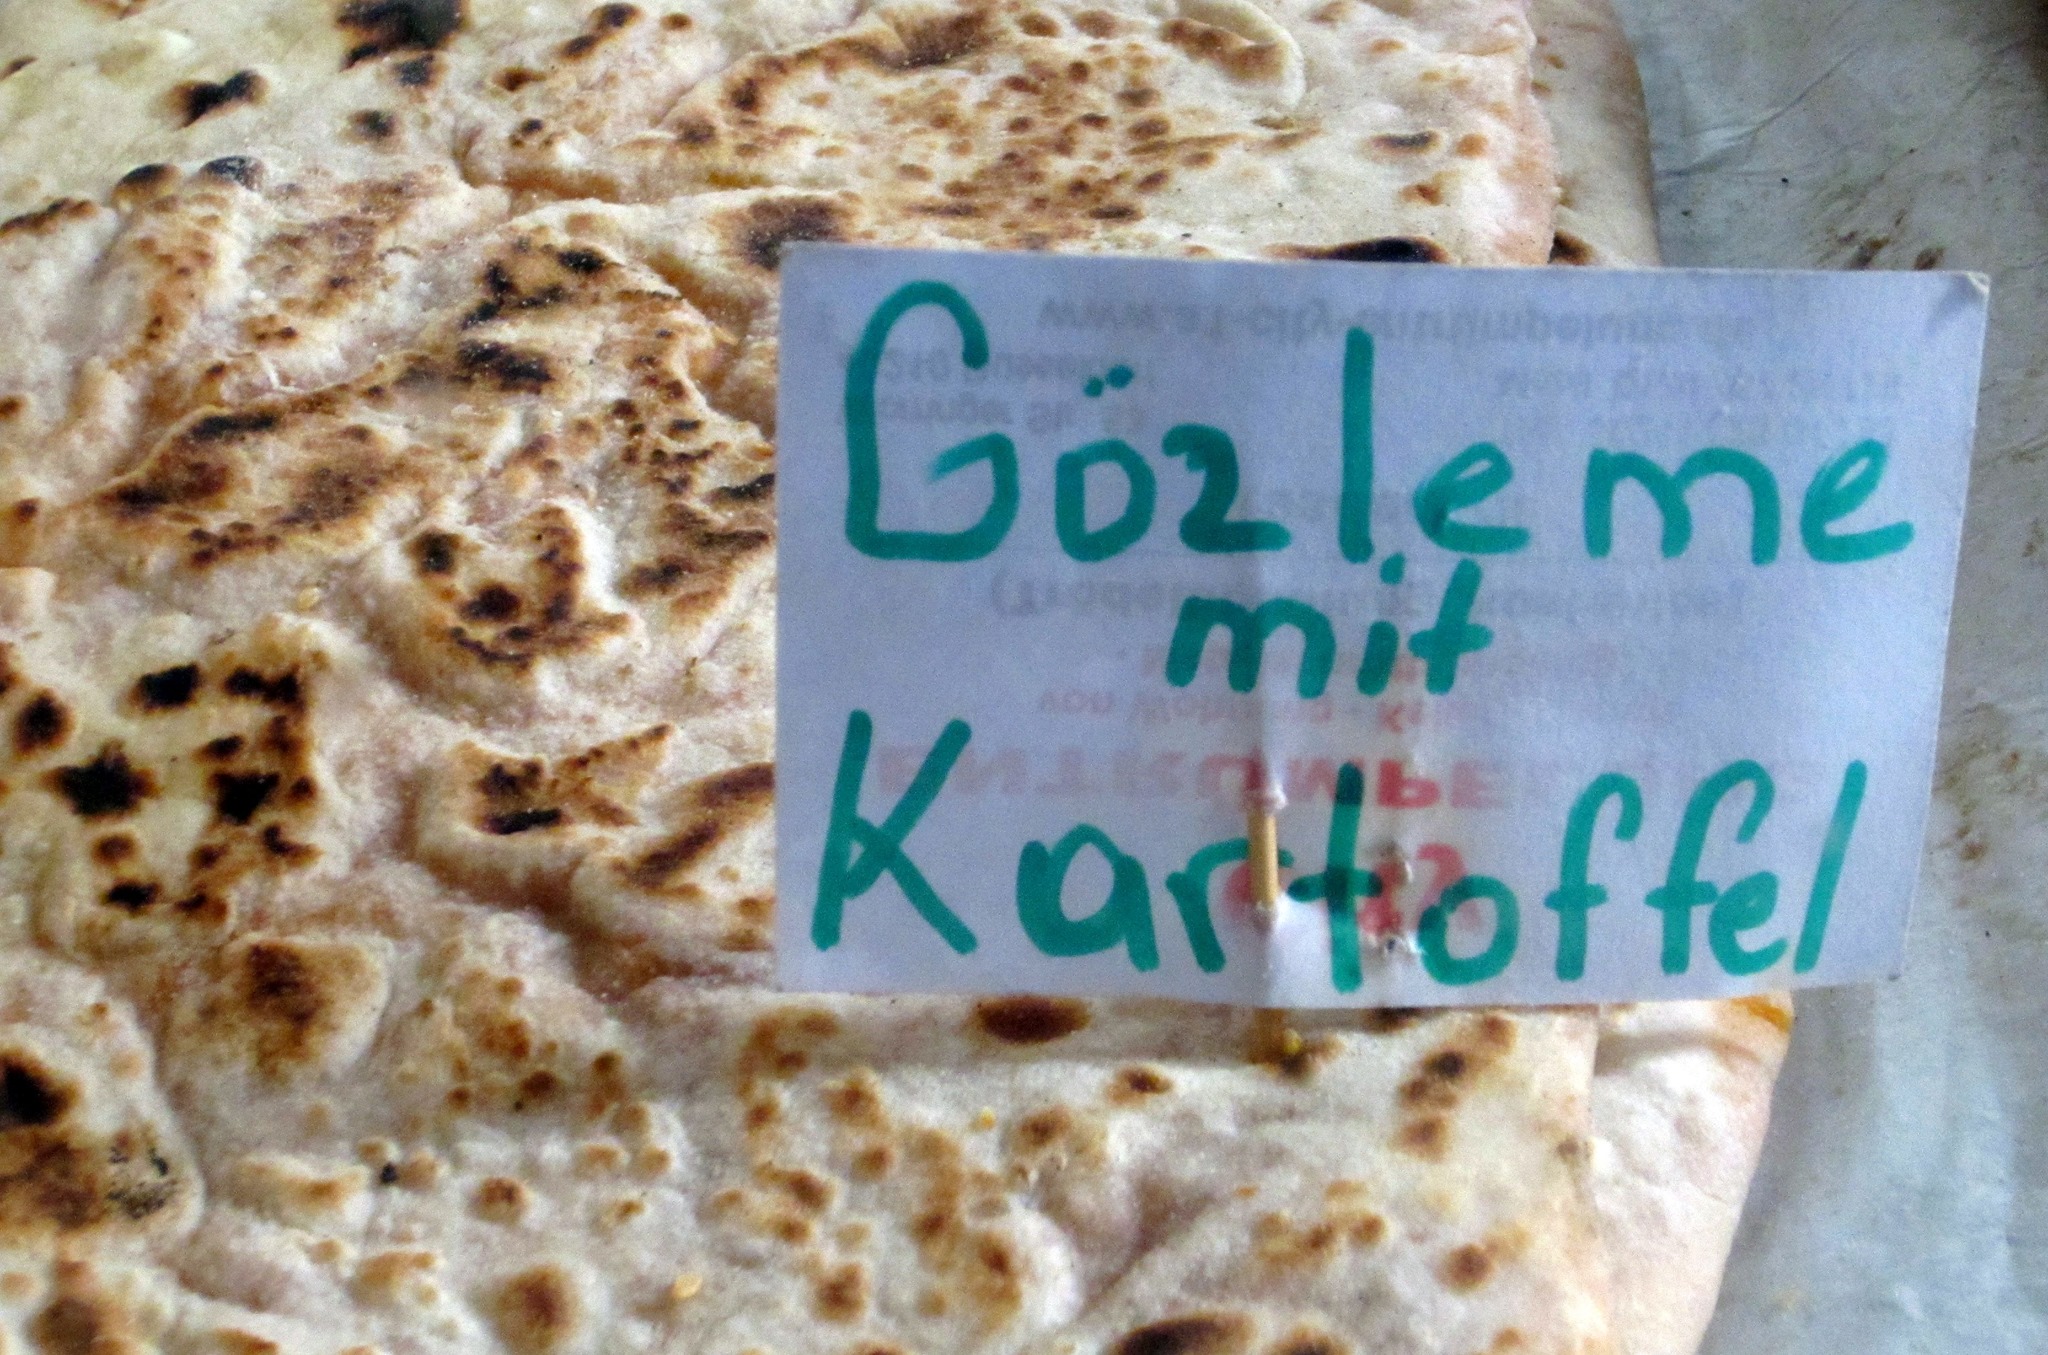 Gözleme
mit
Kartoffel